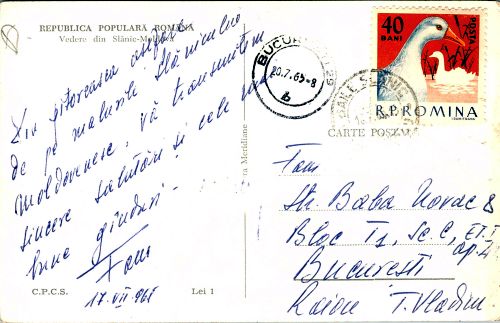 REPUBLICA POPULARĂ ROMÂNĂ
Vedere din Slănic-Moldova
Din pitoreasca
de pe malurile Slănicului
moldovenesc, vă transmitem
sincere salutări și cele mai
bune gînduri.
Fam
17.VII.961
C.P.C.S.
Lei 1
Meridiane
BUCUREȘTI
20.7.6 -8
40
BANI
POSTA
R.P.ROMINA
CARTE POȘTALĂ
Fam
Str. Baba Novac 8
Bloc T1, Sc. C, ET. I
ap. 4
București
Raion T. Vladim